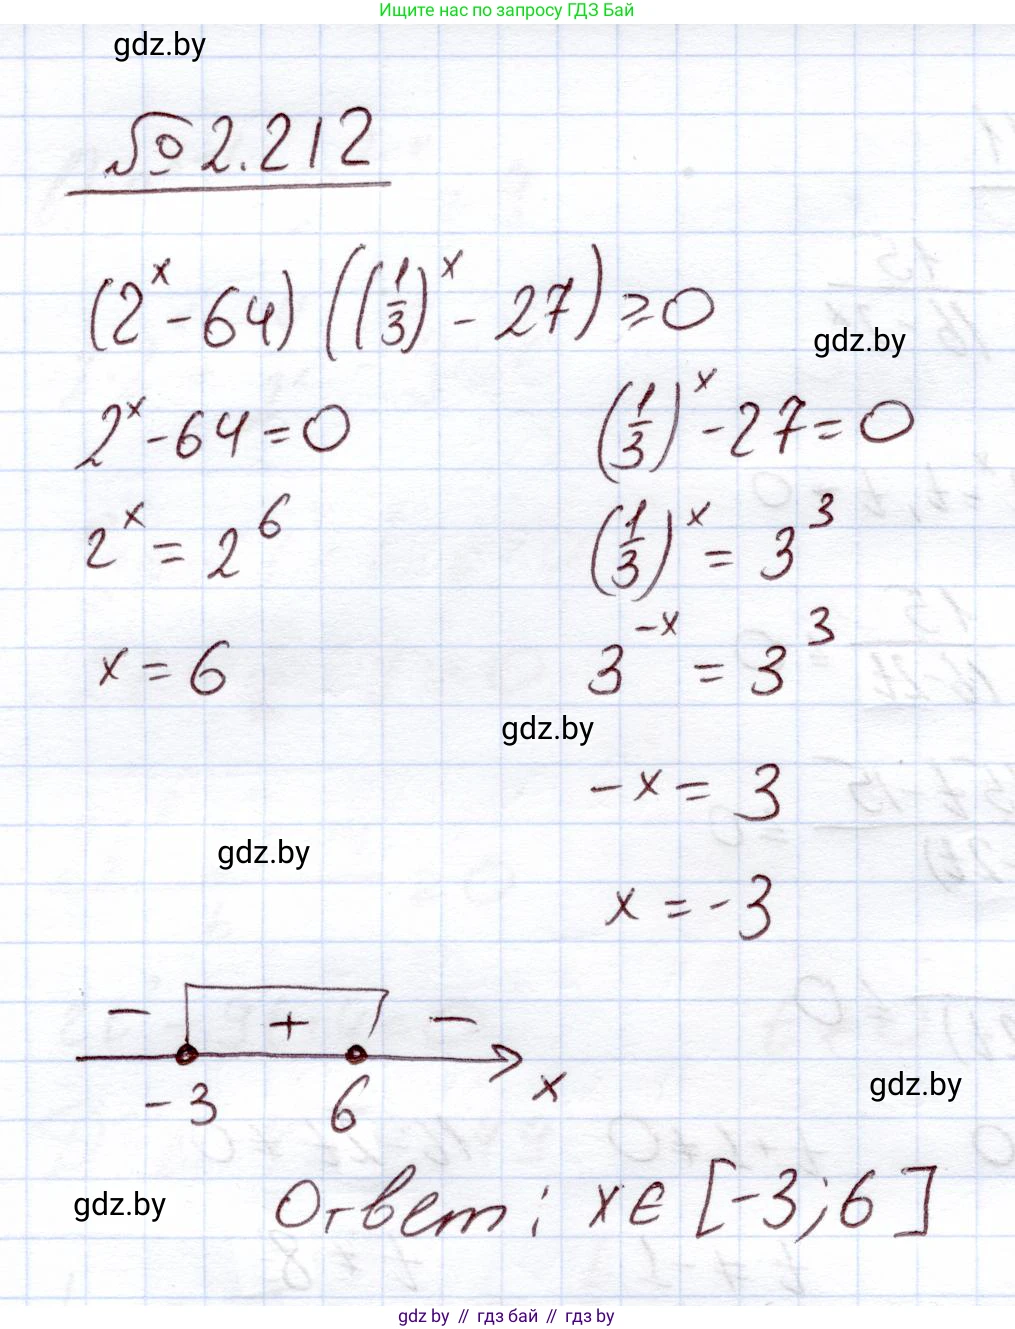 Ищите нас по запросу ГДЗ Бай
gdz.by
№ 2.212
(2^x - 64) ((1/3)^x - 27) ≥ 0
gdz.by
2^x - 64 = 0
(1/3)^x - 27 = 0
2^x = 2^6
(1/3)^x = 3^3
x = 6
3^-x = 3^3
gdz.by
-x = 3
gdz.by
x = -3
- + -
-3 6 x
gdz.by
gdz.by
Ответ: x ∈ [-3; 6]
gdz.by // гдз бай // гдз by